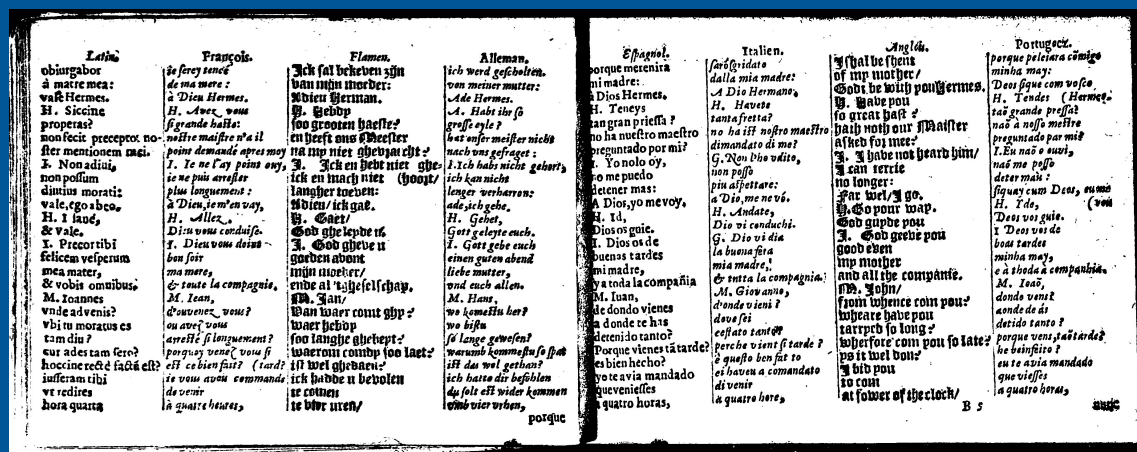 Latin.
obiurgabor
à matre mea:
vale Hermes.
H. Siccine
properas?
non fecit preceptor no-
ster mentionem mei.
J. Non adiui,
non possum
diutius morati:
vale, ego abeo.
H. I sanè,
& vale.
I. Precor tibi
felicem vesperum
mea mater,
& vobis omnibus,
M. Ioannes
vnde advenis?
vbi tu moratus es
tam diu?
cur ades tam sero?
hoccine rectè factũ est?
iusseram tibi
vt redires
hora quarta
François.
ie serey tencé
de ma mere:
à Dieu Hermes.
H. Avez vous
si grande haste:
nostre maistre n'a il
point demandé apres moy
I. Ie ne l'ay point ouy,
ie ne puis arrester
plus longuement:
à Dieu, ie m'en vay,
H. Allez.
Dieu vous conduise.
I. Dieu vous doint
bon soir
ma mere,
& toute la compagnie,
M. Iean,
d'ou venez vous?
ou avez vous
arresté si longuement?
porquoy venez vous si
est ce bien fait? (tard?
ie vous avou commandé
de venir
à quatre heures,
Flamen.
Ick sal bekeven zijn
van mijn moeder:
Adieu Herman.
H. Hebdy
soo grooten haeste?
en heeft ons Meester
na my niet ghevraecht?
J. Ick en hebt niet ghe-
ick en mach niet (hoort/
langher toeven:
Adieu/ ick gae.
H. Gaet/
God gheleyde u.
J. God gheve u
goeden avont
mijn moeder/
ende al 't gheselschap.
M. Jan/
Van waer comt ghy?
waer hebdy
soo langhe ghebeyt?
waerom comdy soo laet?
ist wel ghedaen?
ick hadde u bevolen
te comen
te vier uren/
Alleman.
ich werd gescholten.
von meiner mutter:
Ade Hermes.
A. Habt ihr sò
grosse eyle?
hat onser meister nicht
nach vns gefraget:
I. Ich habs nicht gehort,
ich kan nicht
lenger verharron:
ade, ich gehe.
H. Gehet,
Gott geleyte euch.
I. Gott gebe euch
einen guten abend
liebe mutter,
vnd euch allen.
M. Hans,
wo komestu her?
wo bistu
sò lange gewesen?
warumb kommestu so spat
ist das wol gethan?
ich hatte dir befohlen
du solt est wider kommen
vmb vier vrhen,
porque
Espagnol.
porque me renira
mi madre:
à Dios Hermes.
H. Teneys
tan gran priessa?
no ha nuestro maestro
preguntado por mi?
I. Yo no lo oy,
no me puedo
detener mas:
A Dios, yo me voy.
H. Id,
Dios os guie.
I. Dios os de
buenas tardes
mi madre,
y a toda la compañia
M. Iuan,
de dondo vienes
a donde te has
detenido tanto?
Porque vienes tã tarde?
es bien hecho?
yo te avia mandado
que veniesses
a quatro horas,
Italien.
sarò sgridato
dalla mia madre:
A Dio Hermano,
H. Havete
tanta fretta?
no ha ist nostro maestro
dimandato di me?
G. Non l'ho udito,
non posso
piu aspettare:
a Dio, me ne vò.
H. Andate,
Dio vi conduchi.
G. Dio vi dia
la buona sera
mia madre,
& tutta la compagnia.
M. Giovanno,
d'onde vieni?
dove sei
restato tanto?
perche vient si tarde?
è questo ben fat to
ei haveu a comandato
di venir
à quatro hore,
Anglois.
I shal be shent
of my mother/
God be with you Hermes.
H. Have you
so great hast?
hath noth our Maister
asked for mee?
J. I have not heard him/
I can terrie
no longer:
Far wel/ I go.
H. Go your way.
God guyde you
J. God geeve you
good even
my mother
and all the companie.
M. John/
from whence com you?
wheare have you
tarryed so long?
wherfore com you so late?
ys it wel don?
I bid you
to com
at fower of the clock/
B 5
Portugoez.
porque pelejara cõmigo
minha may:
Deos fique com vosco
H. Tendes (Hermes.
taõ grande pressa?
naõ a nosso mestre
preguntado par mi?
I. Eu naõ o ouvi,
naõ me posso
determan:
fiquay cum Deos, eu me
H. Yde, (vou
Deos vos guie.
I Deos vos de
boas tardes
minha may,
e à thoda à companhia.
M. Ioaõ,
donde vens?
aonde de ás
detido tanto?
porque vens, taõ tarde?
he beinfeito?
eu te avia mandado
que viesses
a quatro horas,